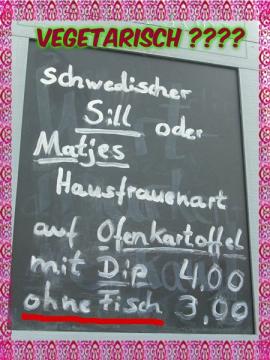 VEGETARISCH ????
Schwedischer
Sill oder
Matjes
Hausfrauenart
auf Ofenkartoffel
mit Dip 4,00
ohne Fisch 3,00